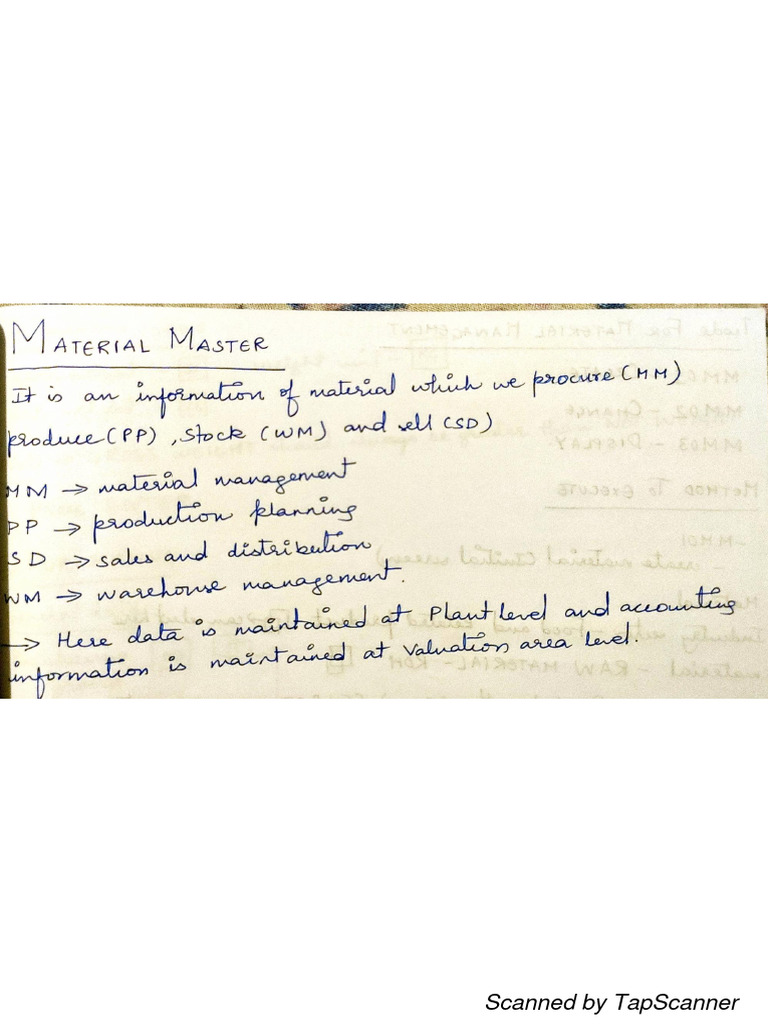 MATERIAL MASTER
It is an information of material which we procure (MM)
produce (PP) , Stock (WM) and sell (SD)
MM → material management
PP → production planning
SD → sales and distribution
WM → warehouse management.
→ Here data is maintained at Plant level and accounting
information is maintained at valuation area level.
Scanned by TapScanner